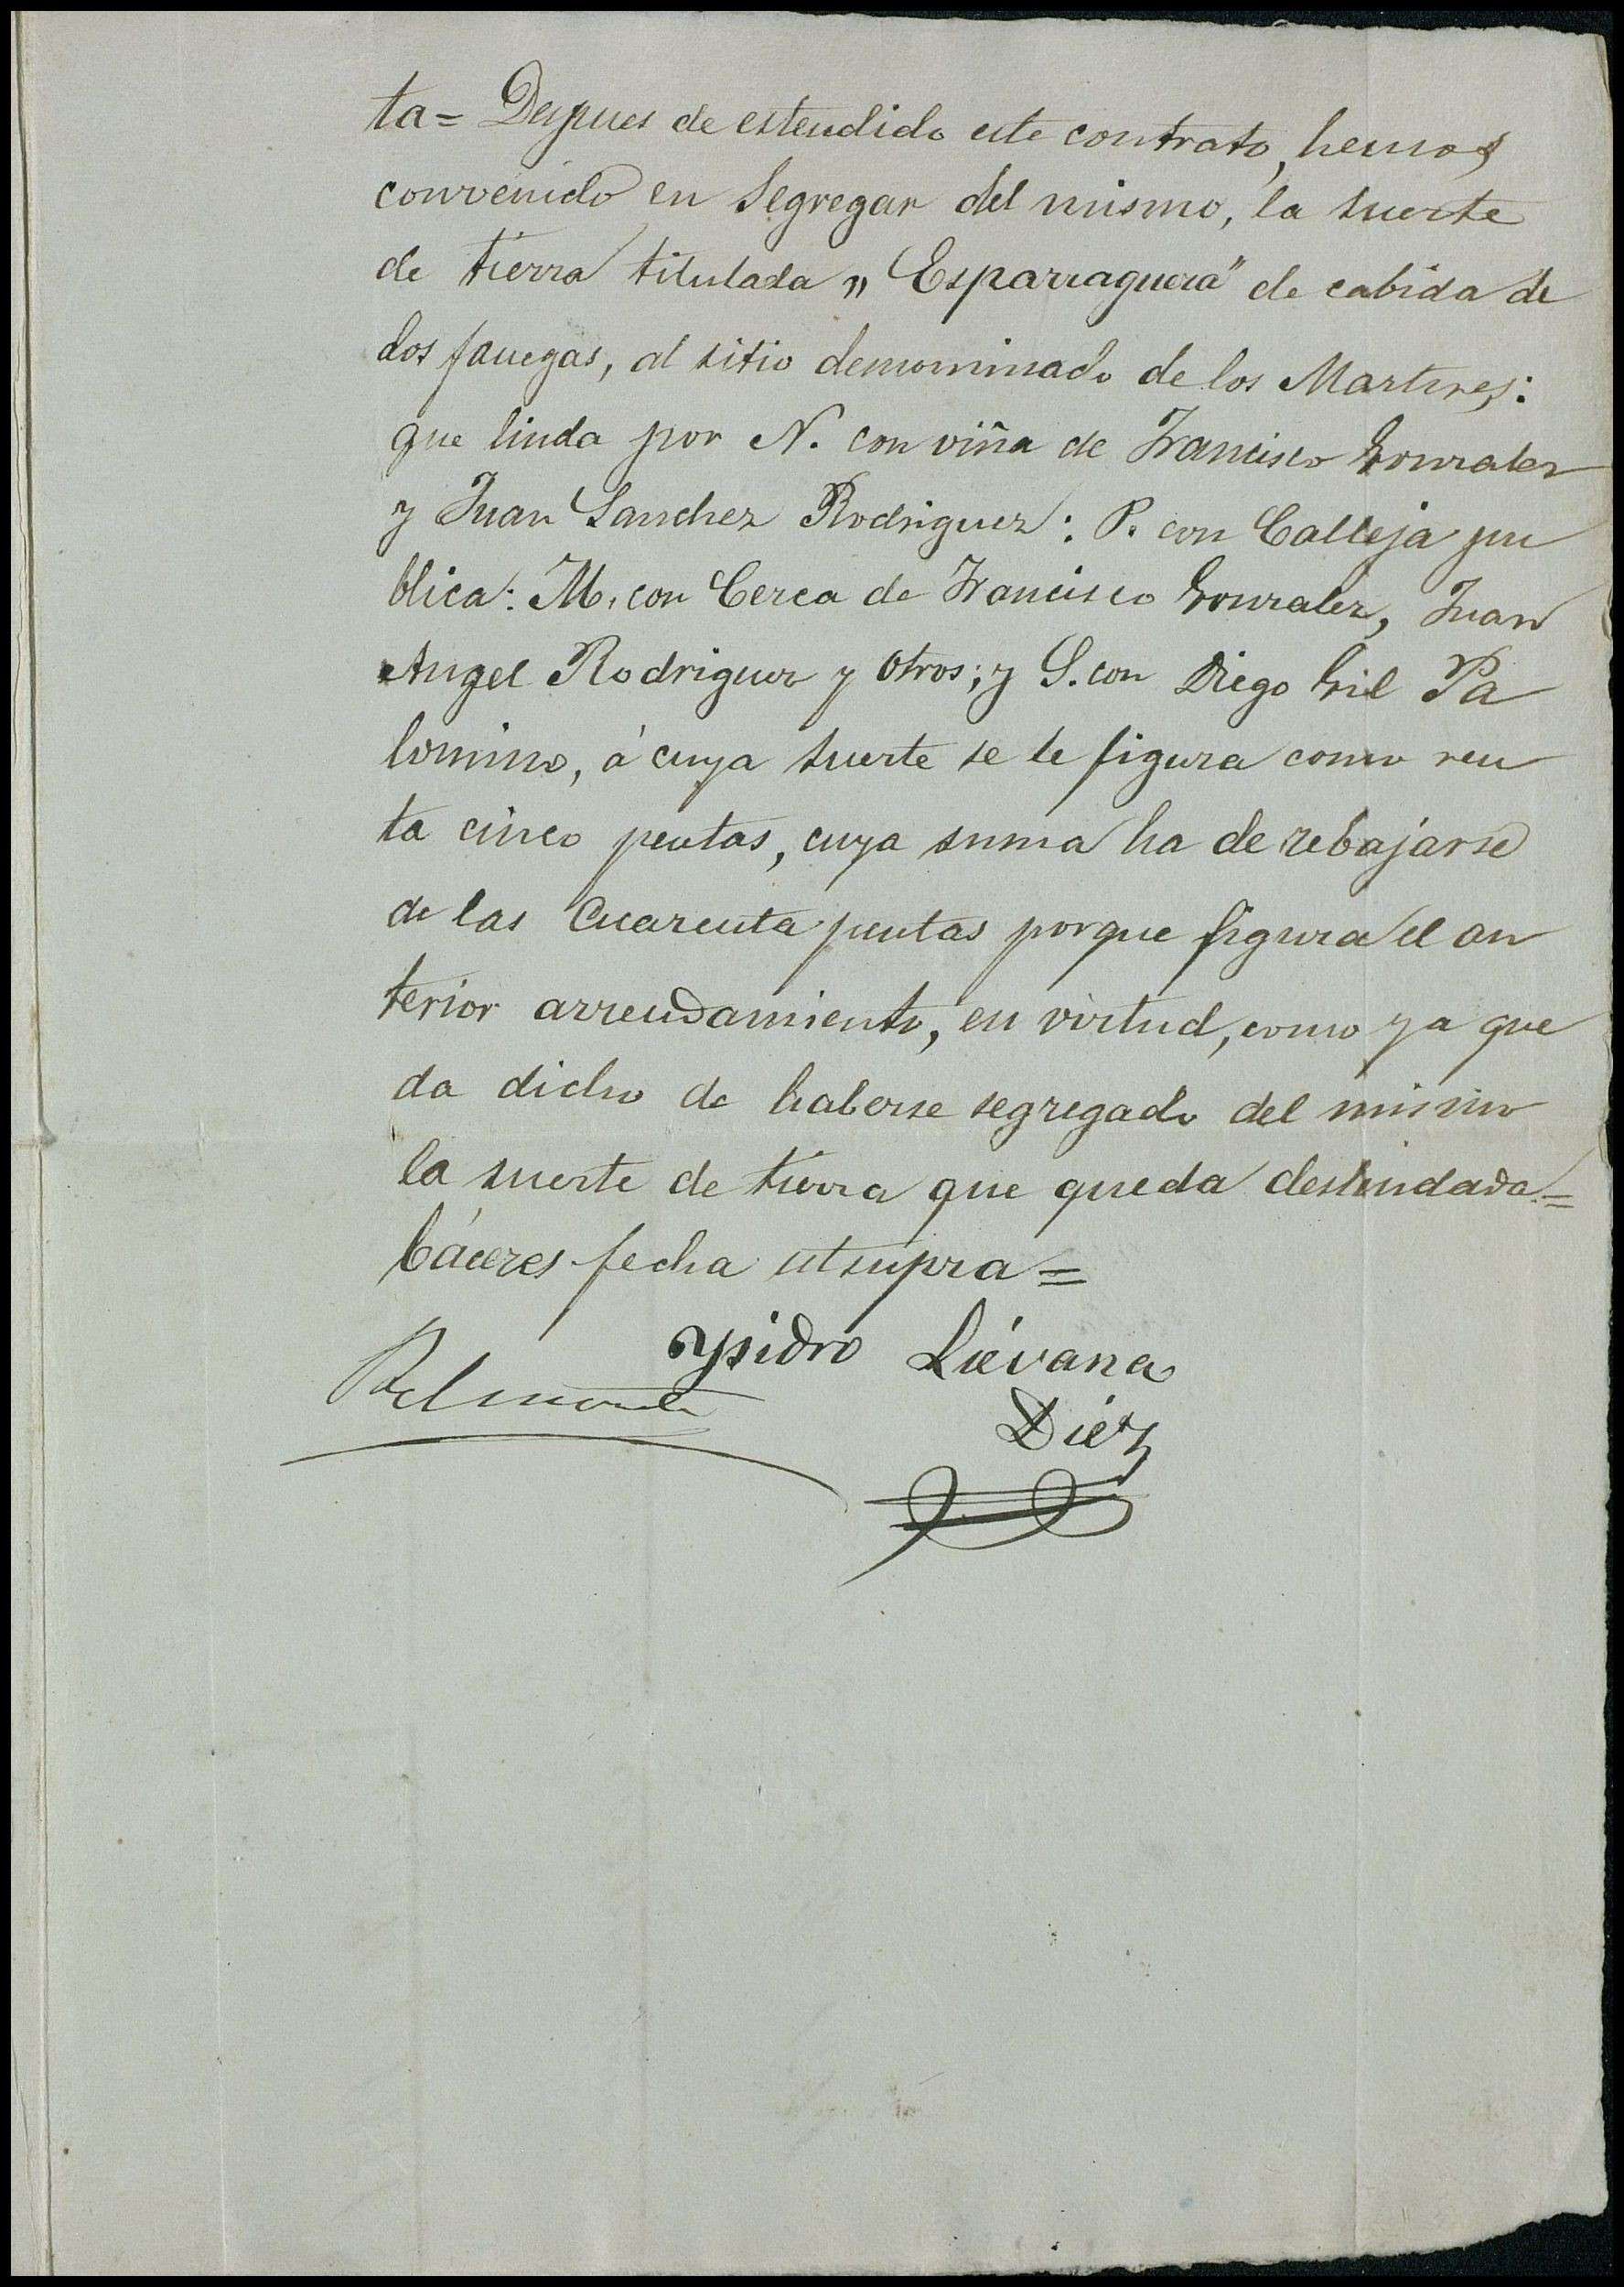 ta= Despues de estendido este contrato, hemos
convenido en segregar del mismo, la suerte
de tierra titulada „Esparraguera" de cabida de
dos fanegas, al sitio denominado de los Martires:
que linda por N. con viña de Francisco Gonzalez
y Juan Sanchez Rodriguez: P. con Calleja pu
blica: M. con Cerca de Francisco Gonzalez, Juan
Angel Rodriguez y otros; y S. con Diego Gil Pa
lomino, á cuya suerte se le figura como ren
ta cinco pesetas, cuya suma ha de rebajarse
de las Cuarenta pesetas porque figura el an
terior arrendamiento, en virtud, como ya que
da dicho de haberse segregado del mismo
la suerte de tierra que queda deslindada=
Cáceres fecha utsupra=
Ysidro Liévana
Belmonte
Diéz